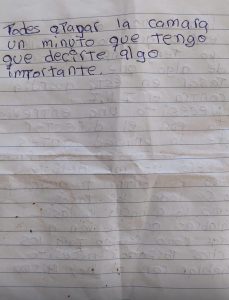 Podes apagar la camara
un minuto que tengo
que decirte algo
importante.